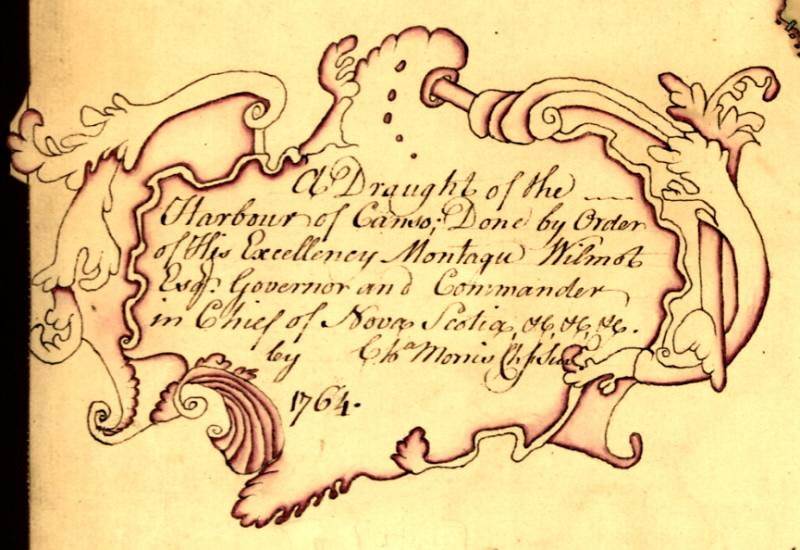 A Draught of the
Harbour of Canso; Done by Order
of His Excellency Montagu Wilmot
Esqr. Governor and Commander
in Chief of Nova Scotia, &c, &c, &c.
by Chas Morris Ch. Sur.
1764.